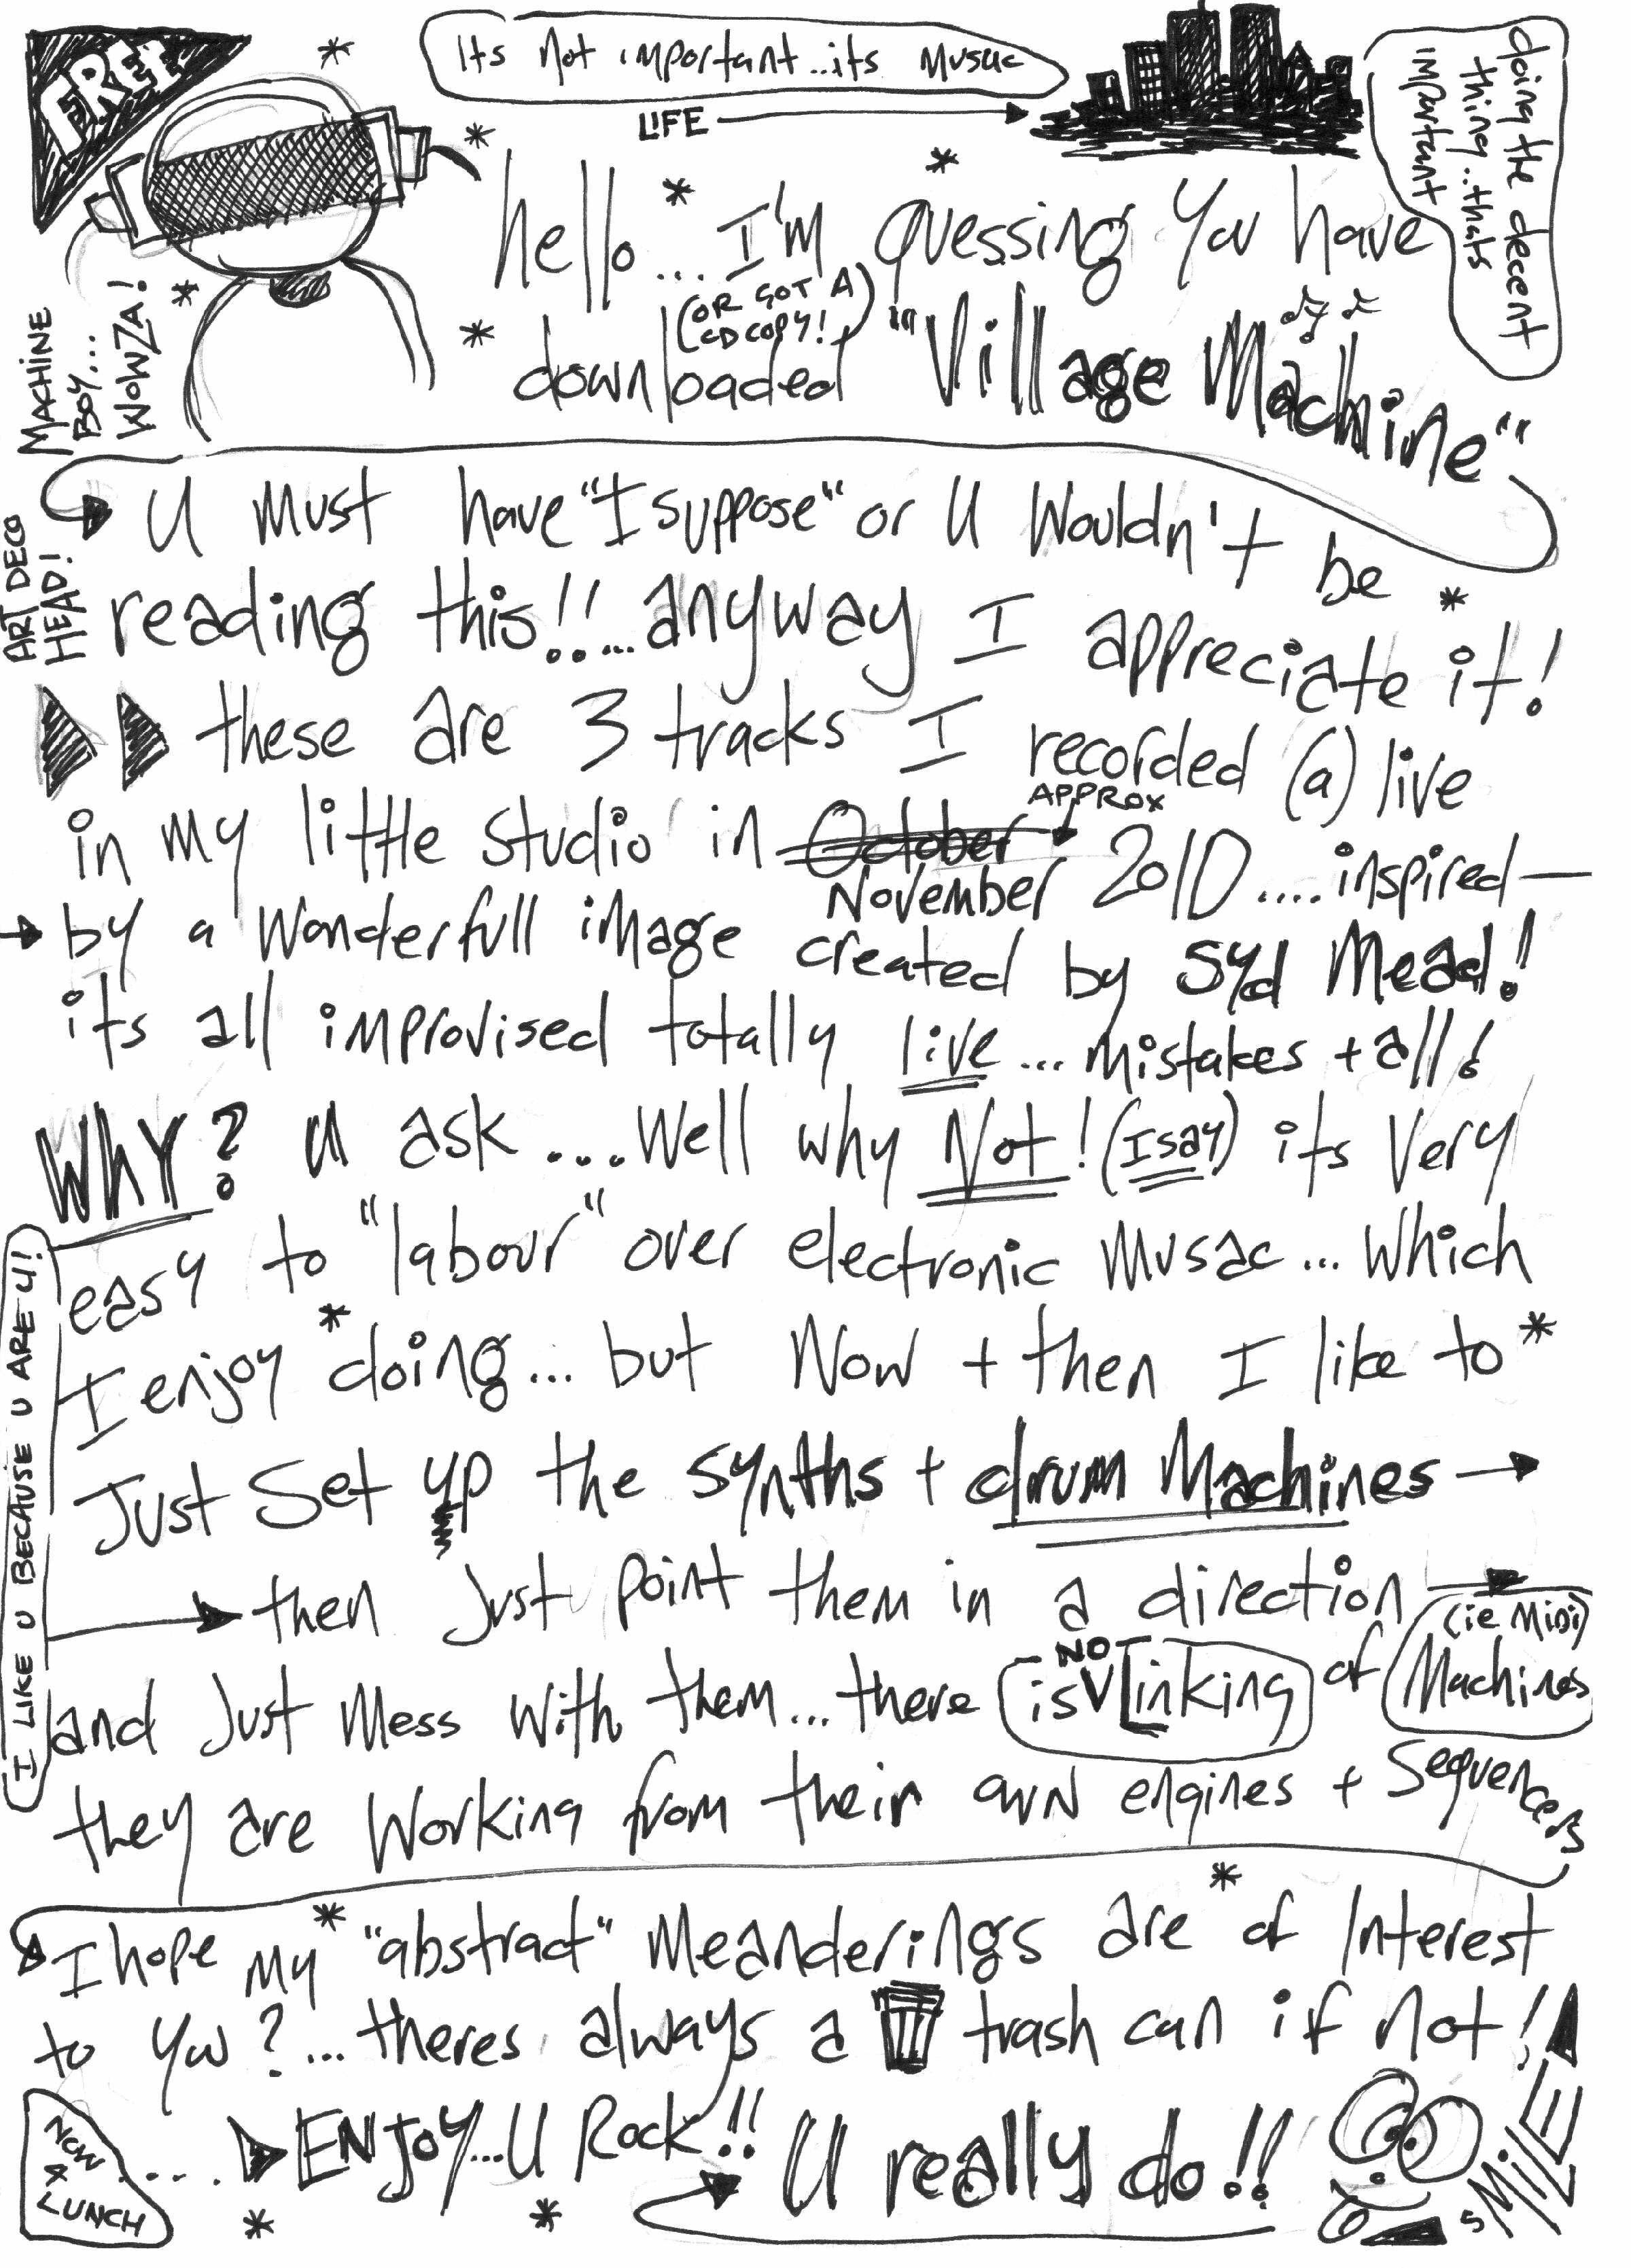 FREE
Its Not important...its Musac
LIFE
doing the decent
thing..thats
important
MACHINE
BOY...
WOWZA!
hello... I'm guessing You have
(OR GOT A
CD COPY!)
downloaded "Village Machine"
U must have "I suppose" or U Wouldn't be
ART DECO
HEAD!
reading this!!...anyway I appreciate it!
these are 3 tracks I recorded (a) live
in my little studio in October APPROX
November 2010....inspired
by a Wonderfull image created by Syd Mead!
its all improvised totally live...mistakes + all!
WhY? U ask ....Well why Not! (I say) its Very
easy to "labour" over electronic Musac...Which
I enjoy *doing...but Now + then I like to*
Just Set up the Synths + drum Machines
then Just point them in a direction
and Just Mess With them...there is NO Linking of (ie Midi) Machines
they are Working from their own engines + Sequencers
I LIKE U BECAUSE U ARE U!
I hope my* "abstract" Meanderings are* of Interest
to You?...theres always a trash can if not!
NOW
4
LUNCH
.... ENJOY...U Rock!! U really do!!
SMILE